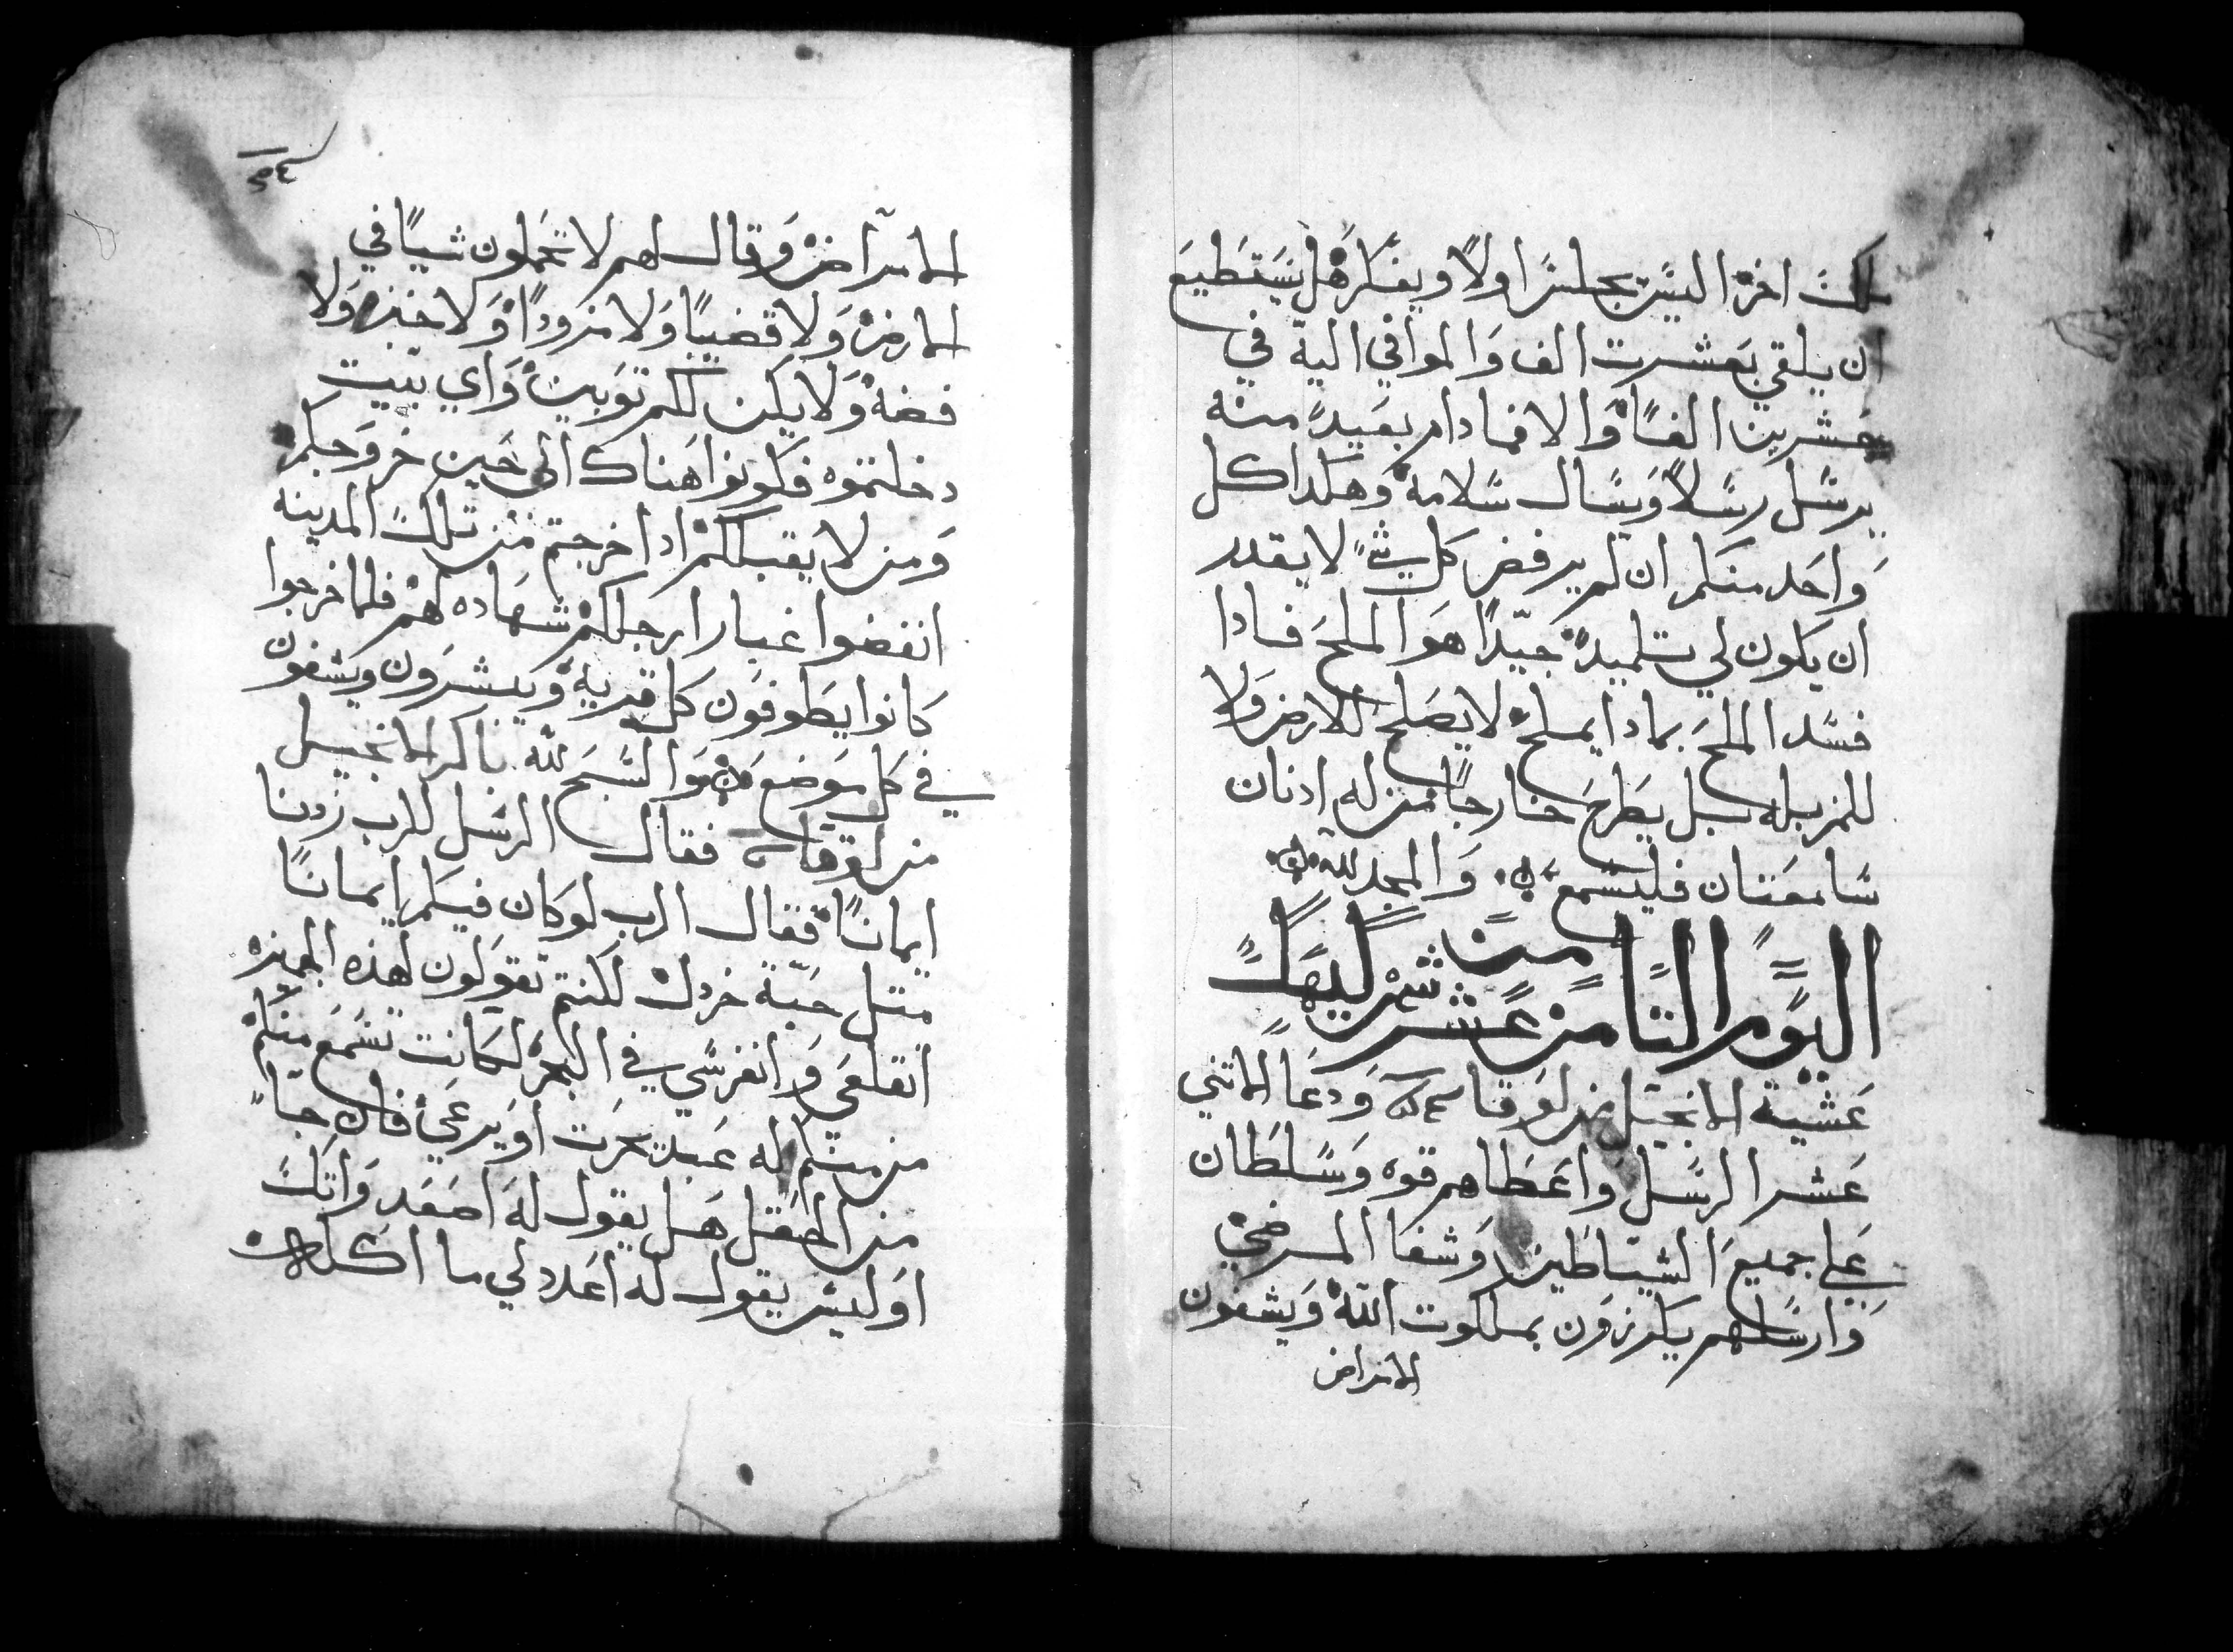 ملك اخر اليس يجلس اولا ويفكر هل يستطيع
ان يلقي بعشرت الف والموافي اليه في
عشرين الفا والا فما دام بعيد منه
يرسل رسلا ويسال سلامه وهكدا كل
واحد منكم ان لم يرفض كل شي لا يقدر
ان يكون لي تلميد جيدا هو الملح فادا
فسد الملح بمادا يملح لا يصلح للارض ولا
للمزبله بل يطرح خارجا من له ادنان
سامعتان فليسمع والمجد لله
اليوم التامن عشر من شهر كيهك
عشية الانجيل من لوقا ودعا الاثني
عشر الرسل واعطاهم قوه وسلطان
علي جميع الشياطين وشفا المرضي
وارسلهم يكرزون بملكوت الله ويشفون
الامراض
الامراض وقال لهم لا تحملون شيا في
الارض ولا قضيبا ولا مزودا ولا خبز ولا
فضه ولا يكن لكم توبين واي بيت
دخلتموه فكونوا هناك الي حين خروجكم
ومن لا يقبلكم ادا خرجتم من تلك المدينه
انفضوا غبار ارجلكم شهاده لهم فلما خرجوا
كانوا يطوفون كل قريه ويبشرون ويشفون
في كل موضع والسبح لله باكر الانجيل
من لوقا فقال الرسل للرب زدنا
ايمانا فقال الرب لو كان فيكم ايمانا
متل حبة خردل لكنتم تقولون لهذه الجميزه
انقلعي وانغرسي في البحر لكانت تسمع منكم
من منكم له عبد يحرت او يرعي فان جا
من الحقل هل يقول له اصعد واتك
او ليس يقول له اعدد لي ما اكل